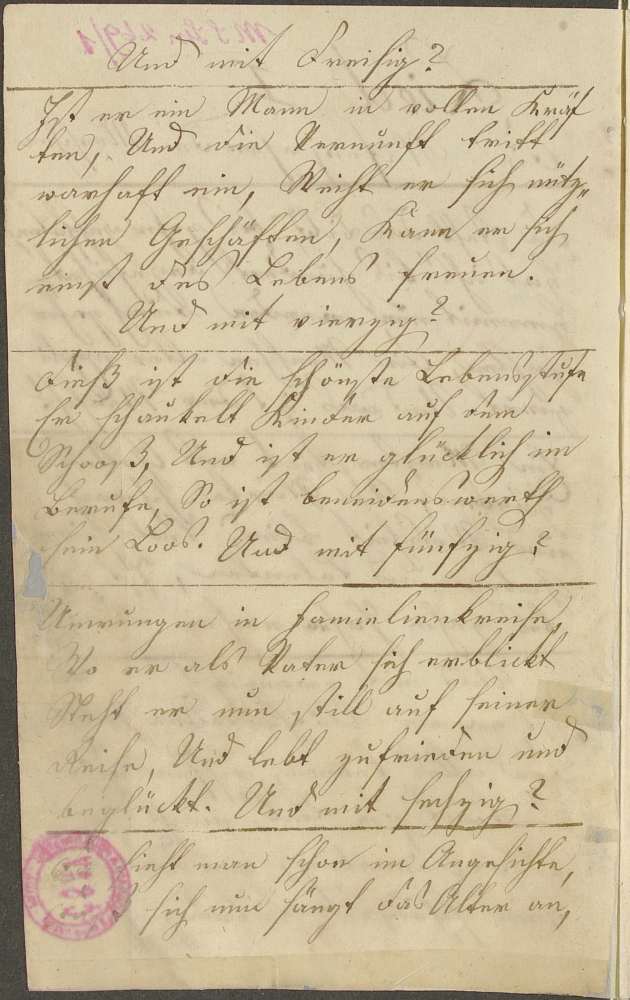 Und mit Dreisig?
Ist er ein Mann in vollen Kräf
ten, Und die Vernunft tritt
warhaft ein, Weiht er sich nütz-
lichen Geschäften, Kann er sich
einst des Lebens freuen.
Und mit vierzig?
Dieß ist die schönste Lebensstufe
Er schaukelt Kinder auf dem
Schooß, Und ist er glücklich im
Berufe, So ist beneidenswerth
sein Loos. Und mit fünfzig?
Umrungen in Familienkreise,
Wo er als Vater sich erblickt
Steht er nun still auf seiner
Reise, Und lebt zufrieden und
beglückt. Und mit sechzig?
sieht man schon im Angesichte,
sich nun fängt das Alter an,